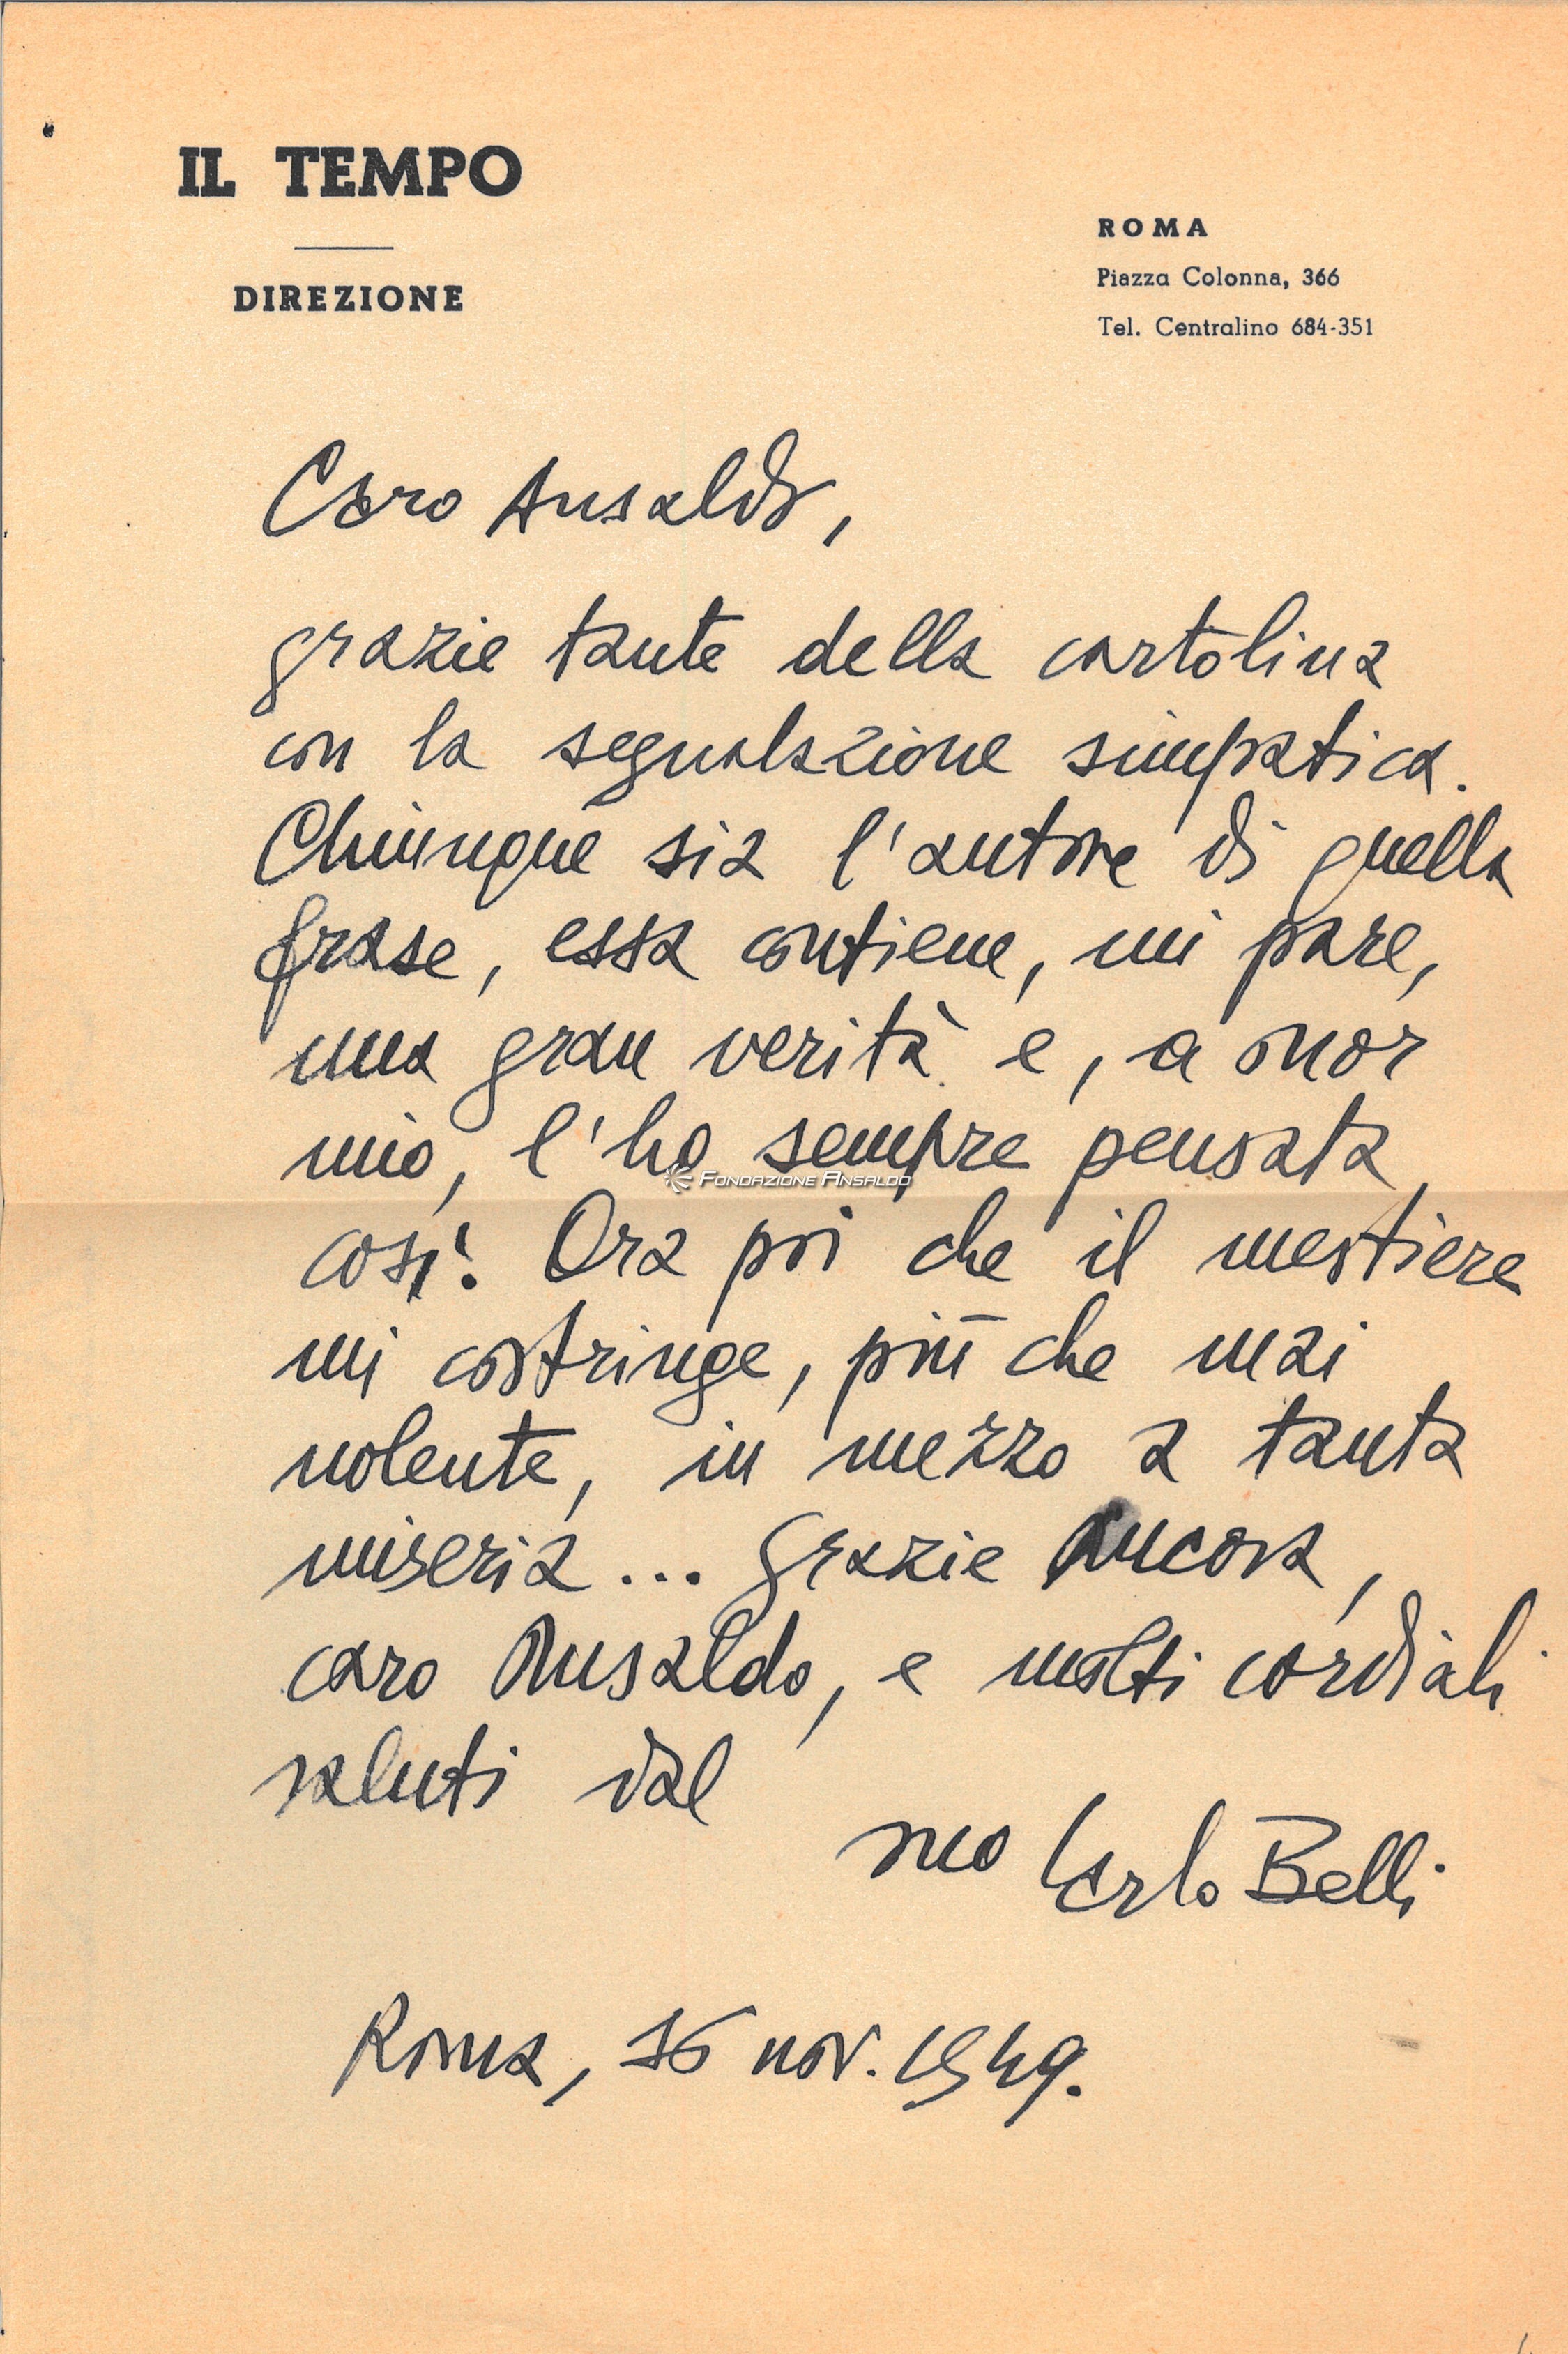 IL TEMPO
DIREZIONE
ROMA
Piazza Colonna, 366
Tel. Centralino 684-351
Caro Ansaldo,
grazie tante della cartolina
con la segnalazione simpatica.
Chiunque sia l'autore di quella
frase, essa contiene, mi pare,
una gran verità e, a onor
mio, l'ho sempre pensata
così. Ora poi che il mestiere
mi costringe, più che mai
nolente, in mezzo a tanta
miseria... Grazie ancora,
caro Ansaldo, e molti cordiali
saluti dal
suo Carlo Belli
Roma, 16 nov. 1949.
FONDAZIONE ANSALDO